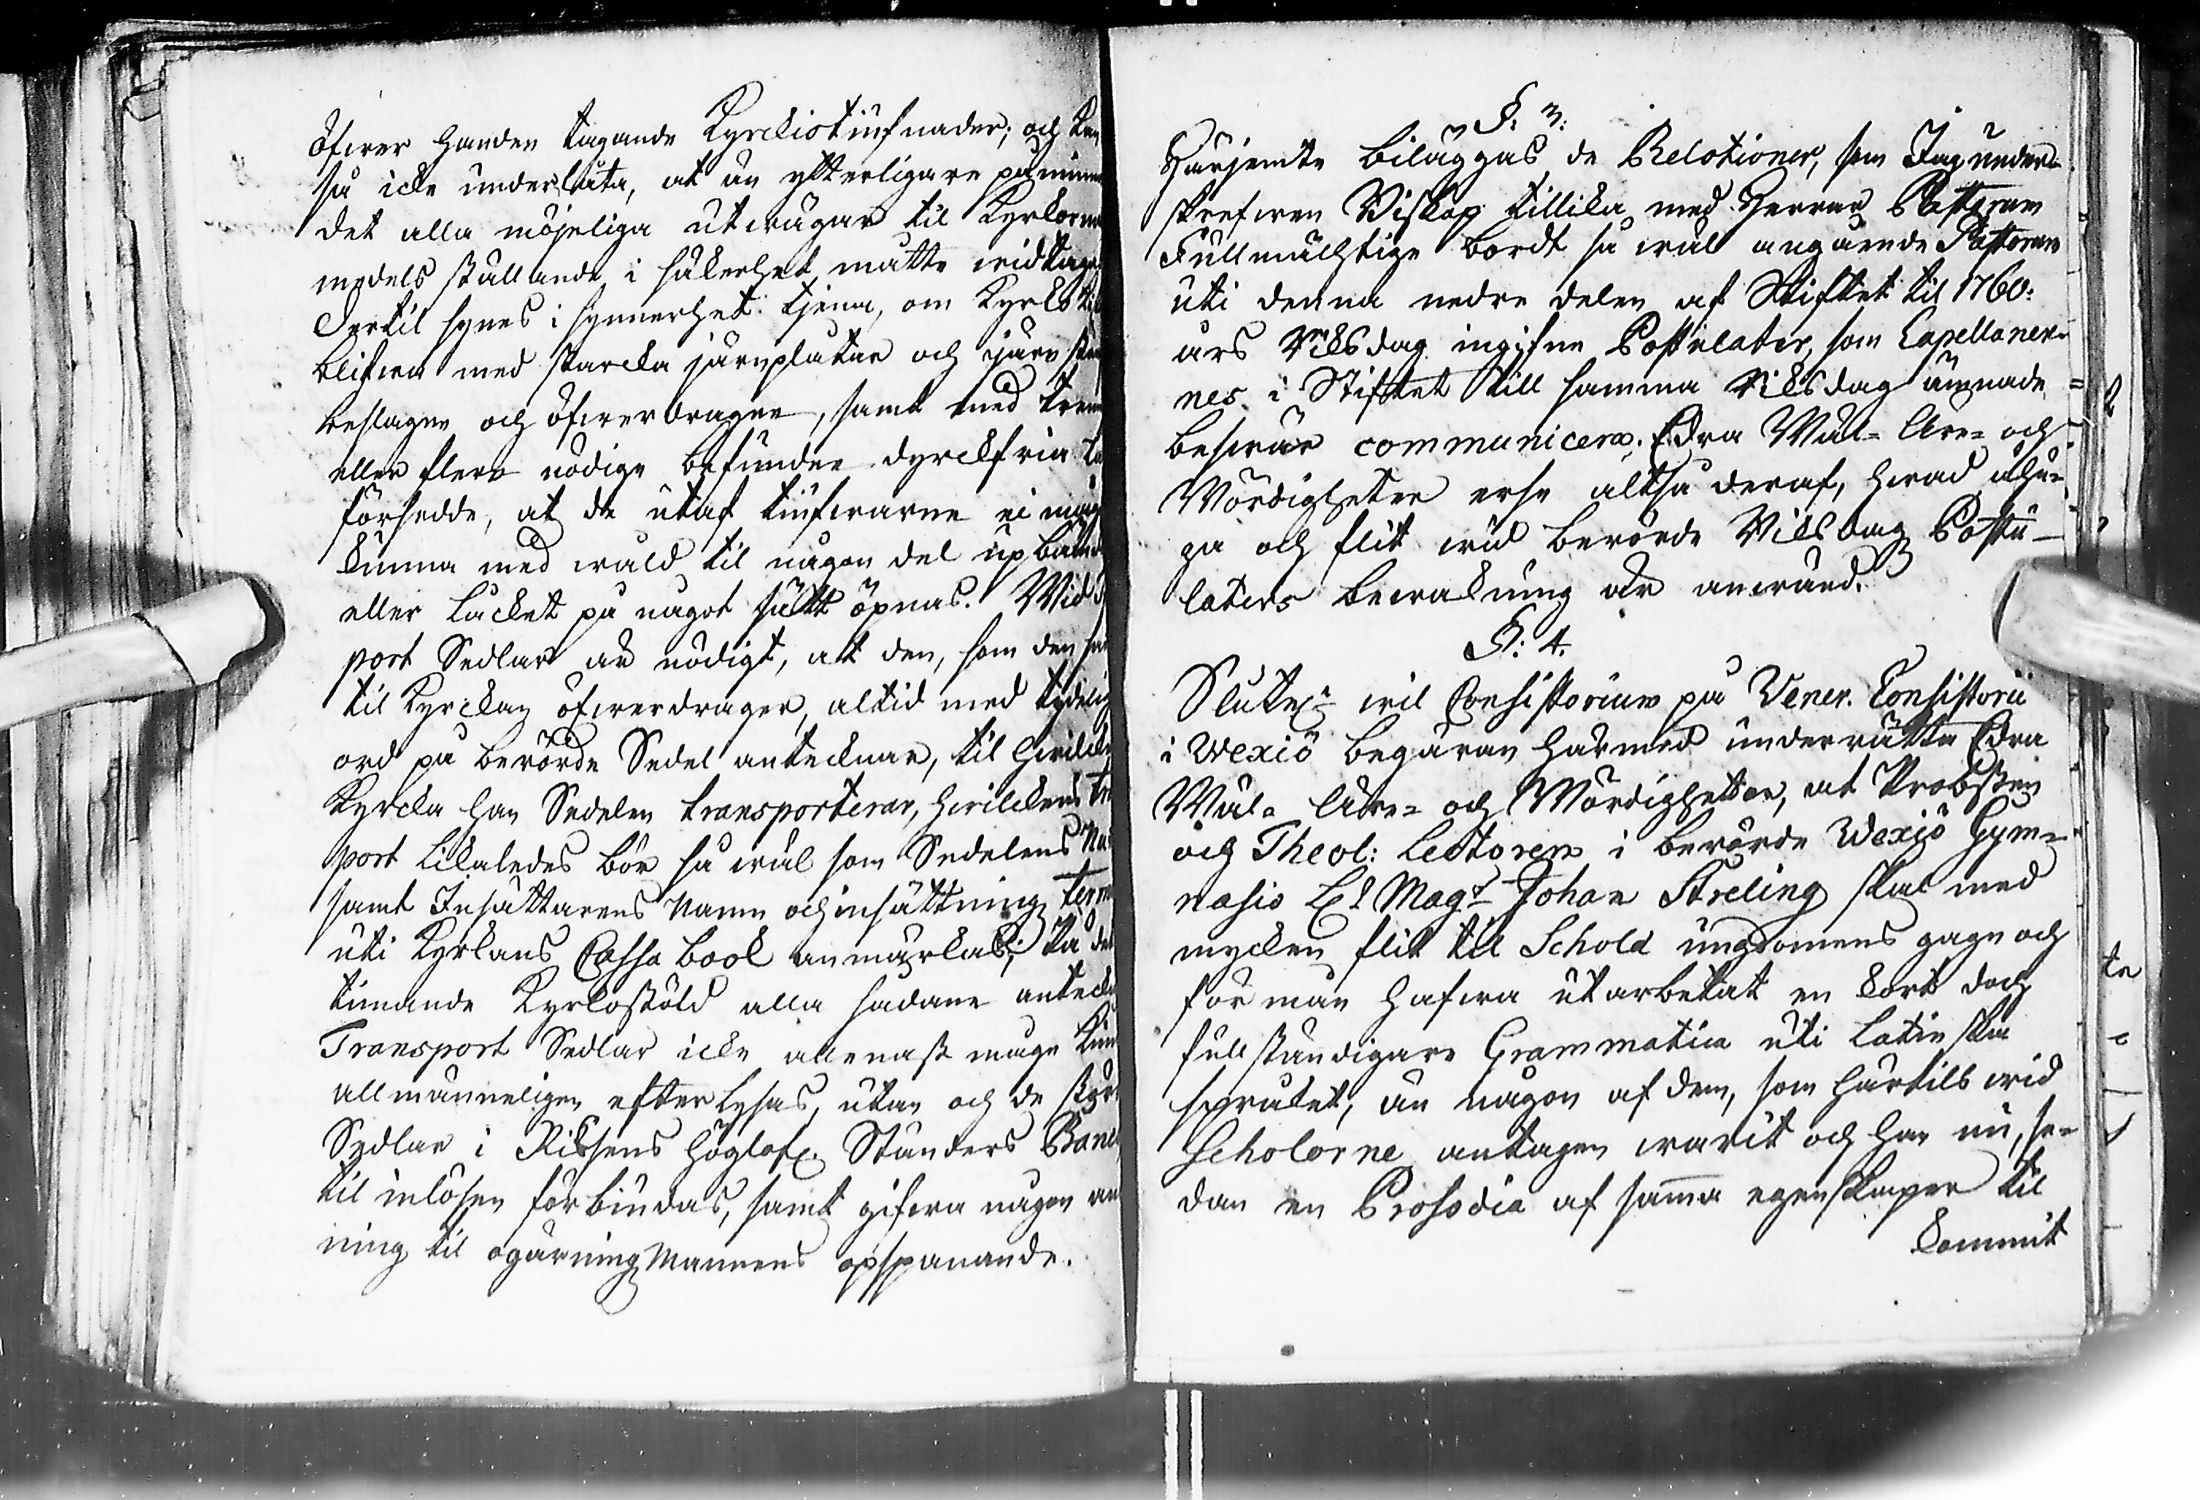 öfwer handen tagande Kyrckiotiufnader; och kan
så icke underlåta, at än ytterligare påminna
det alla möjeliga utwägar til Kyrkorne
medels ställande i säkerhet, måtte widtagas
Dertil synes i synnerhet tjena, om Kyrko
blifwa med starcka järnplåtar och järn
beslagne och öfwerdragne, samt med trenne
eller flere nödige befundne dyrckfria
försedde, at de utaf tiufwarne ei måge
kunna med wåld til någon del upbän
eller låcket på något sätt öpnas. Wid
port Sedlar är nödigt, att den, som den
til Kyrckan öfwerdrager, altid med tydelig
ord på berörde Sedel antecknar, til hwilcken
Kyrcka han Sedelen transporterar, hwilckens
port likaledes bör så wäl som Sedelens
samt Insättarens Namn och insättning
uti Kyrkans Cassa book anmärkas; då
timande Kyrkostöld alla sådane anteck
Transport Sedlar icke allenast måge kun
allmänneligen efterlysas, utan och de
Sedlar i Riksens Höglofl. Ständers Banco
til inlösen förbindas, samt gifwa någon an
ning til ogärningmannens opspanande.
§. 3.
Härjemte biläggas de Relationer, som Jag under=
skrefwen Biskop tillika med Herrar Pastorum
Fullmächtige bordt så wäl angående Pastorum
uti denna nedre delen af Stiftet til 1760:
års Riksdag ingifne Postulater, som Capellaner=
nes i Stiftet till samma Riksdag ämnade
beswär communicera. Edra Wäl= Äre= och
Wördigheter erse altså deraf, hwad åhå=
ga och flit wid berörde Riksdag Postu-
laters bewakning är anwänd.
§. 4.
Slutel. wil Consistorium på Vener. Consistorii
i Wexiö begäran härmed underrätta Edra
Wäl= Äre= och Wördigheter, at Probsten
och Theol: Lectoren i berörde Wexiö Gym=
nasio H:r Mag:r Johan Streling skal med
mycken flit til Schold ungdomens gagn och
förmån hafwa utarbetat en kort doch
fullständigare Grammatica uti Latinska
språket, än någon af dem, som härtils wid
Scholorne antagen warit och han nu, se=
dan en Prosodia af samma egenskaper til
kommit